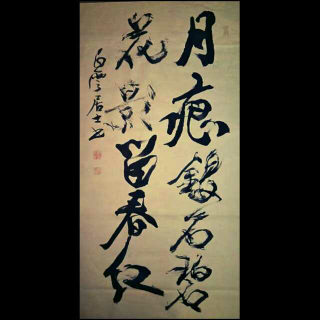 月痕石碧
花影留春紅
白雲居士書